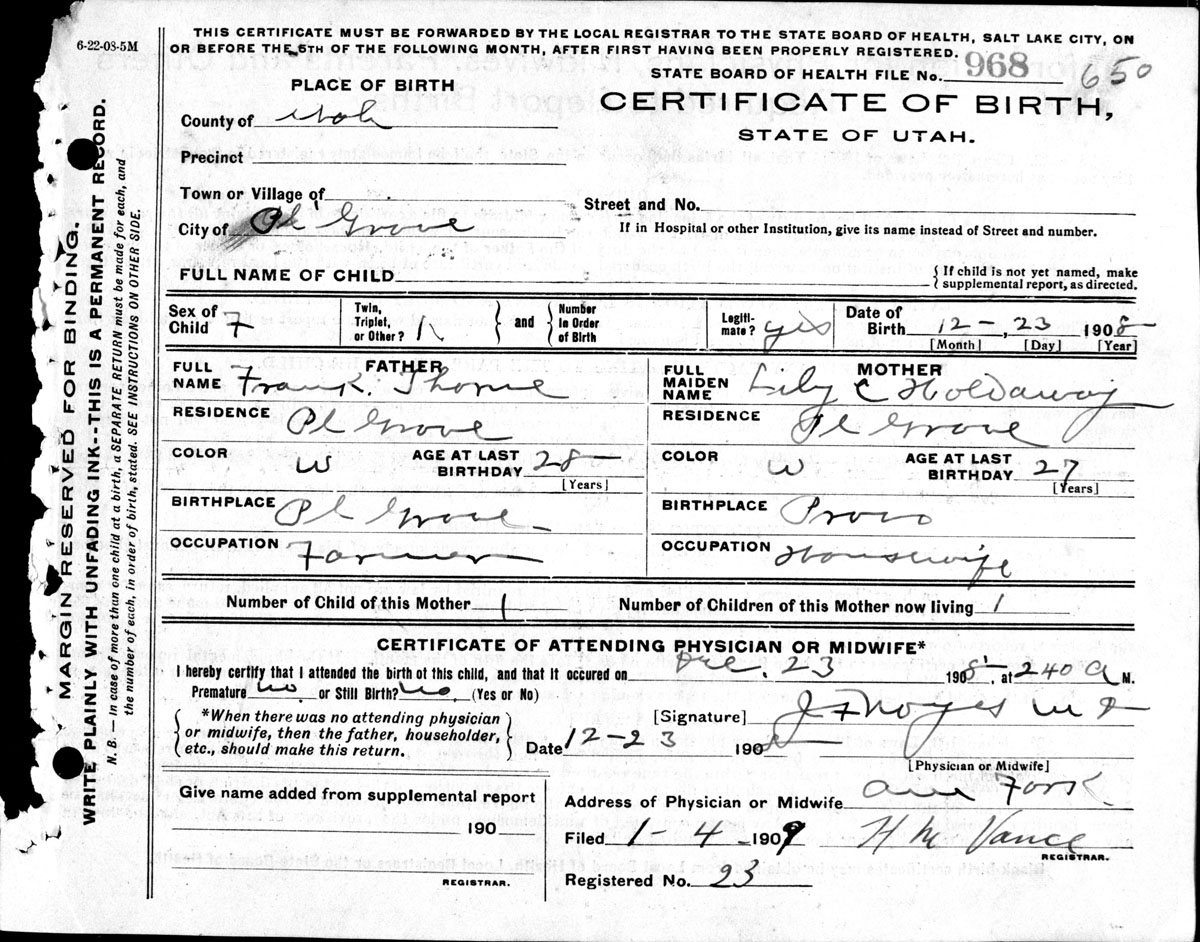 6-22-08-5M
THIS CERTIFICATE MUST BE FORWARDED BY THE LOCAL REGISTRAR TO THE STATE BOARD OF HEALTH, SALT LAKE CITY, ON
OR BEFORE THE 5TH OF THE FOLLOWING MONTH, AFTER FIRST HAVING BEEN PROPERLY REGISTERED.
STATE BOARD OF HEALTH FILE No. 968 650
CERTIFICATE OF BIRTH,
STATE OF UTAH.
PLACE OF BIRTH
County of Utah
Precinct
Town or Village of
City of Pl Grove
Street and No.
If in Hospital or other Institution, give its name instead of Street and number.
FULL NAME OF CHILD
{ If child is not yet named, make
supplemental report, as directed.
Sex of Child F
Twin, Triplet, or Other?
and
Number in Order of Birth
Legiti-mate? yes
Date of Birth 12 - , 23 1908
[Month] [Day] [Year]
FATHER
FULL NAME Frank Thorne
RESIDENCE Pl Grove
COLOR W AGE AT LAST BIRTHDAY 28
[Years]
BIRTHPLACE Pl Grove
OCCUPATION Farmer
MOTHER
FULL MAIDEN NAME Lily C Holdaway
RESIDENCE Pl Grove
COLOR W. AGE AT LAST BIRTHDAY 27
[Years]
BIRTHPLACE Provo
OCCUPATION Housewife
Number of Child of this Mother 1 Number of Children of this Mother now living 1
CERTIFICATE OF ATTENDING PHYSICIAN OR MIDWIFE*
I hereby certify that I attended the birth of this child, and that it occured on Dec. 23 1908, at 240 a M.
Premature no or Still Birth? no (Yes or No)
{ *When there was no attending physician
or midwife, then the father, householder,
etc., should make this return. }
[Signature] J F Noyes M D
Date 12-23 190
[Physician or Midwife]
Give name added from supplemental report
190
REGISTRAR.
Address of Physician or Midwife Am Fork
Filed 1-4 1909 H M Vance
REGISTRAR.
Registered No. 23
MARGIN RESERVED FOR BINDING.
WRITE PLAINLY WITH UNFADING INK--THIS IS A PERMANENT RECORD.
N. B. — In case of more than one child at a birth, a SEPARATE RETURN must be made for each, and
the number of each, in order of birth, stated. SEE INSTRUCTIONS ON OTHER SIDE.